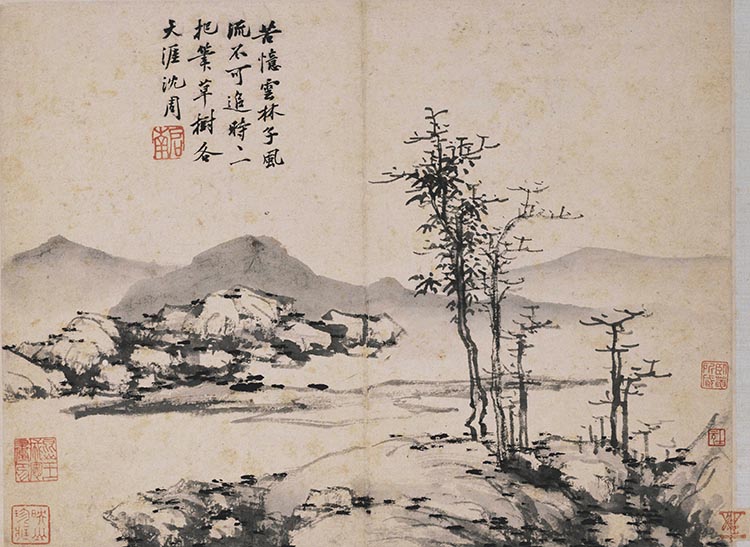 苦憶雲林子風
流不可追時〻
把筆草樹各
天涯沈周
啟南